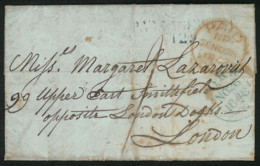 Miss Margaret Lazarovich
29 Upper East Smithfield
opposite London Docks
London